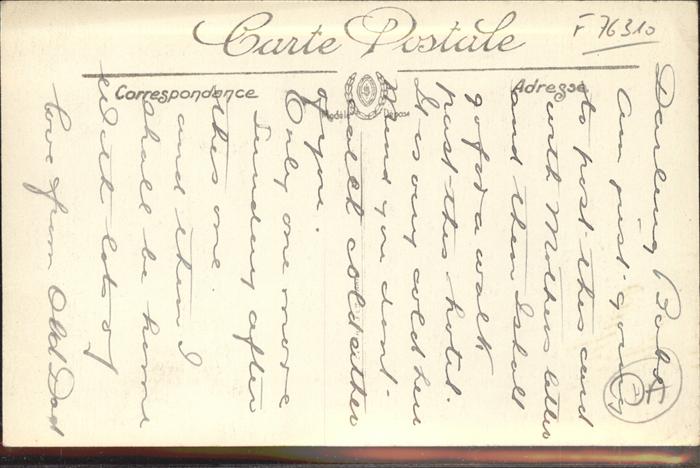 Carte Postale
F 76310
Correspondance
Adresse
Modèle Déposé
Darling Bobs
Am just going
to post this card
with Mothers letter
and then I shall
go for a walk
past this hotel.
It is very cold here
mind you dont
catch cold either
of you.
Only one more
Sunday after
this one.
and then I
shall be home
with lots of
love from Old Dad